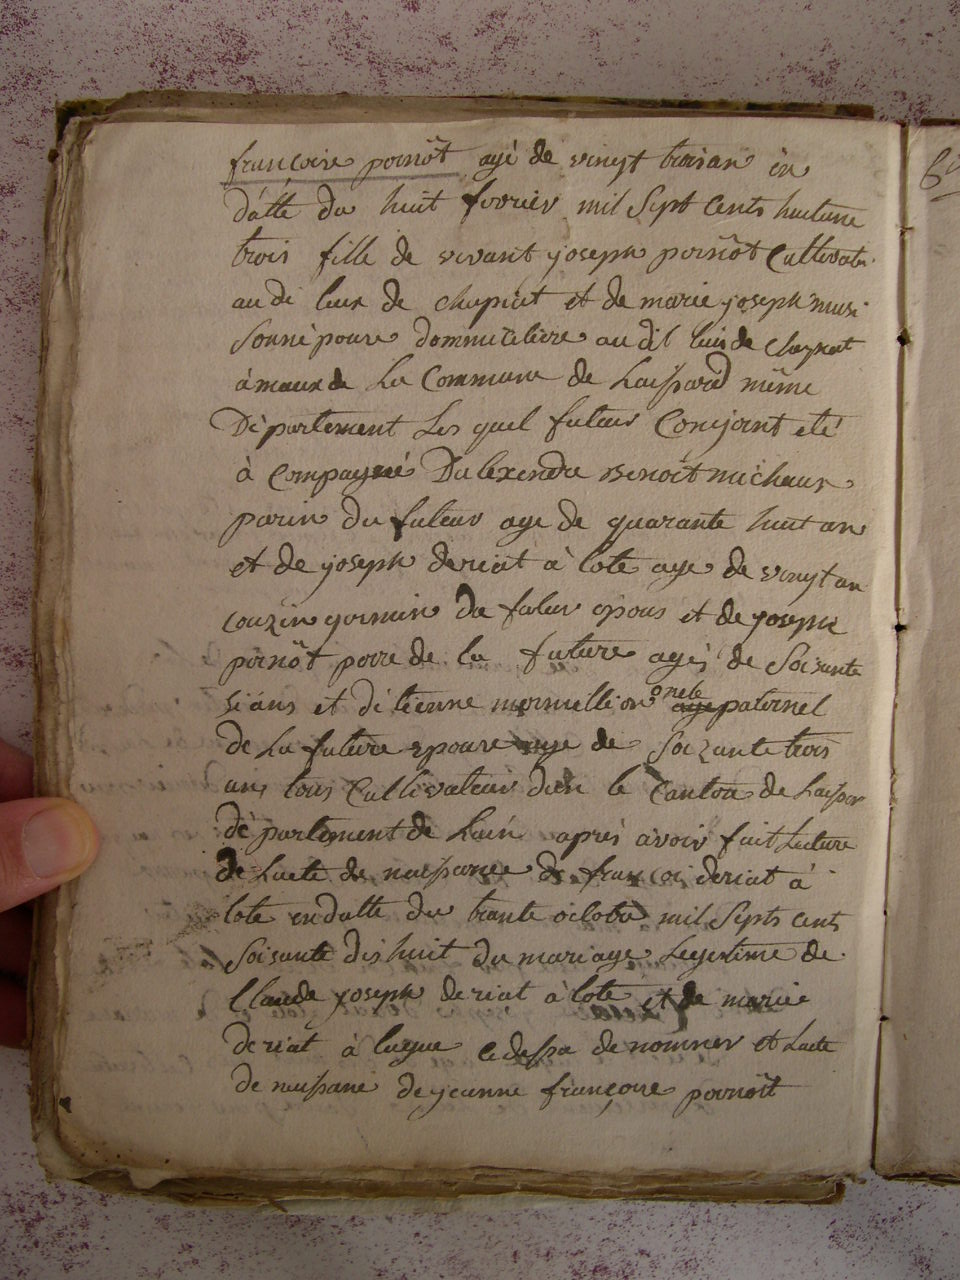 françoise poinôt agé de vingt troisan en
datte du huit fevrier mil Sept Cents huitane
trois fille de vivant joseph poinôt Cultivate
au di lieu de chapiat et de marie joseph musi
Sonnépoure dommiciliere au dit lieu de chapiat
à meaux de La Commune de Laissard même
Département Les quel futeur Conjoint eté
à Compagné Dalexendre Benoît michaux
parin du futeur age de quarante huit an
et de joseph deriat à lote age de vingt an
couzin germin du futur epous et de joseph
poinôt perre de la future agés de Soisante
sians et détienne mermillion onele paternel
De La future epouse age de Soizante trois
ans tous Cultivateur dien le Canton de Laissar
département de Lain après avoir fait Lecture
de Lacte de naissance de francoi deriat à
lote en datte du trante octobre mil Septs cent
Soisante dishuit du mariage Legitime de
Claude joseph deriat à lote et de marie
deriat à lague cedessu de nommer et Lacte
de naissane de jeanne françoise poinôt